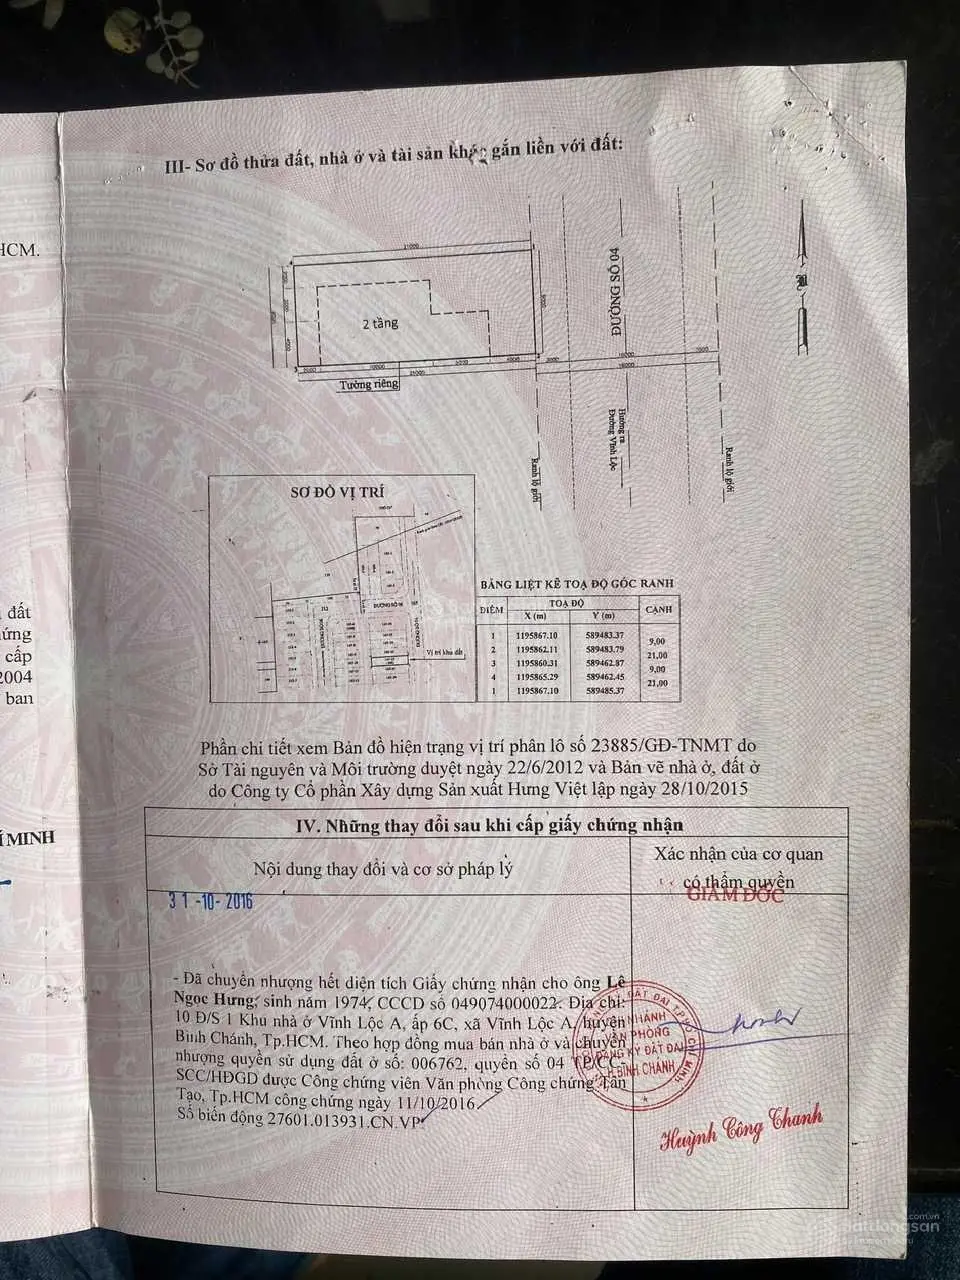 HCM.
III- Sơ đồ thửa đất, nhà ở và tài sản khác gắn liền với đất:
21000
2 tầng
ĐƯỜNG SỐ 04
2000
10000
5000
4000
21000
Tường riêng
Hướng ra
Đường Vĩnh Lộc
Ranh lộ giới
Ranh lộ giới
SƠ ĐỒ VỊ TRÍ
Vị trí khu đất
BẢNG LIỆT KÊ TOẠ ĐỘ GÓC RANH
ĐIỂM
TOẠ ĐỘ
CẠNH
X (m)
Y (m)
1 1195867.10 589483.37
9,00
2 1195862.11 589483.79
21,00
3 1195860.31 589462.87
9,00
4 1195865.29 589462.45
21,00
1 1195867.10 589485.37
đất
ứng
cấp
2004
ban
Í MINH
Phần chi tiết xem Bản đồ hiện trạng vị trí phân lô số 23885/GĐ-TNMT do
Sở Tài nguyên và Môi trường duyệt ngày 22/6/2012 và Bản vẽ nhà ở, đất ở
do Công ty Cổ phần Xây dựng Sản xuất Hưng Việt lập ngày 28/10/2015
IV. Những thay đổi sau khi cấp giấy chứng nhận
Nội dung thay đổi và cơ sở pháp lý
Xác nhận của cơ quan
có thẩm quyền
31-10-2016
GIÁM ĐỐC
- Đã chuyển nhượng hết diện tích Giấy chứng nhận cho ông Lê
Ngọc Hưng, sinh năm 1974, CCCD số 049074000022. Địa chỉ:
10 Đ/S 1 Khu nhà ở Vĩnh Lộc A, ấp 6C, xã Vĩnh Lộc A, huyện
Bình Chánh, Tp.HCM. Theo hợp đồng mua bán nhà ở và chuyển
nhượng quyền sử dụng đất ở số: 006762, quyển số 04 TP/CC-
SCC/HĐGD được Công chứng viên Văn phòng Công chứng Tân
Tạo, Tp.HCM công chứng ngày 11/10/2016.
Số biến động 27601.013931.CN.VP
CHI NHÁNH
VĂN PHÒNG
ĐĂNG KÝ ĐẤT ĐAI
H.BÌNH CHÁNH
Huỳnh Công Thanh
batdongsan
.com.vn